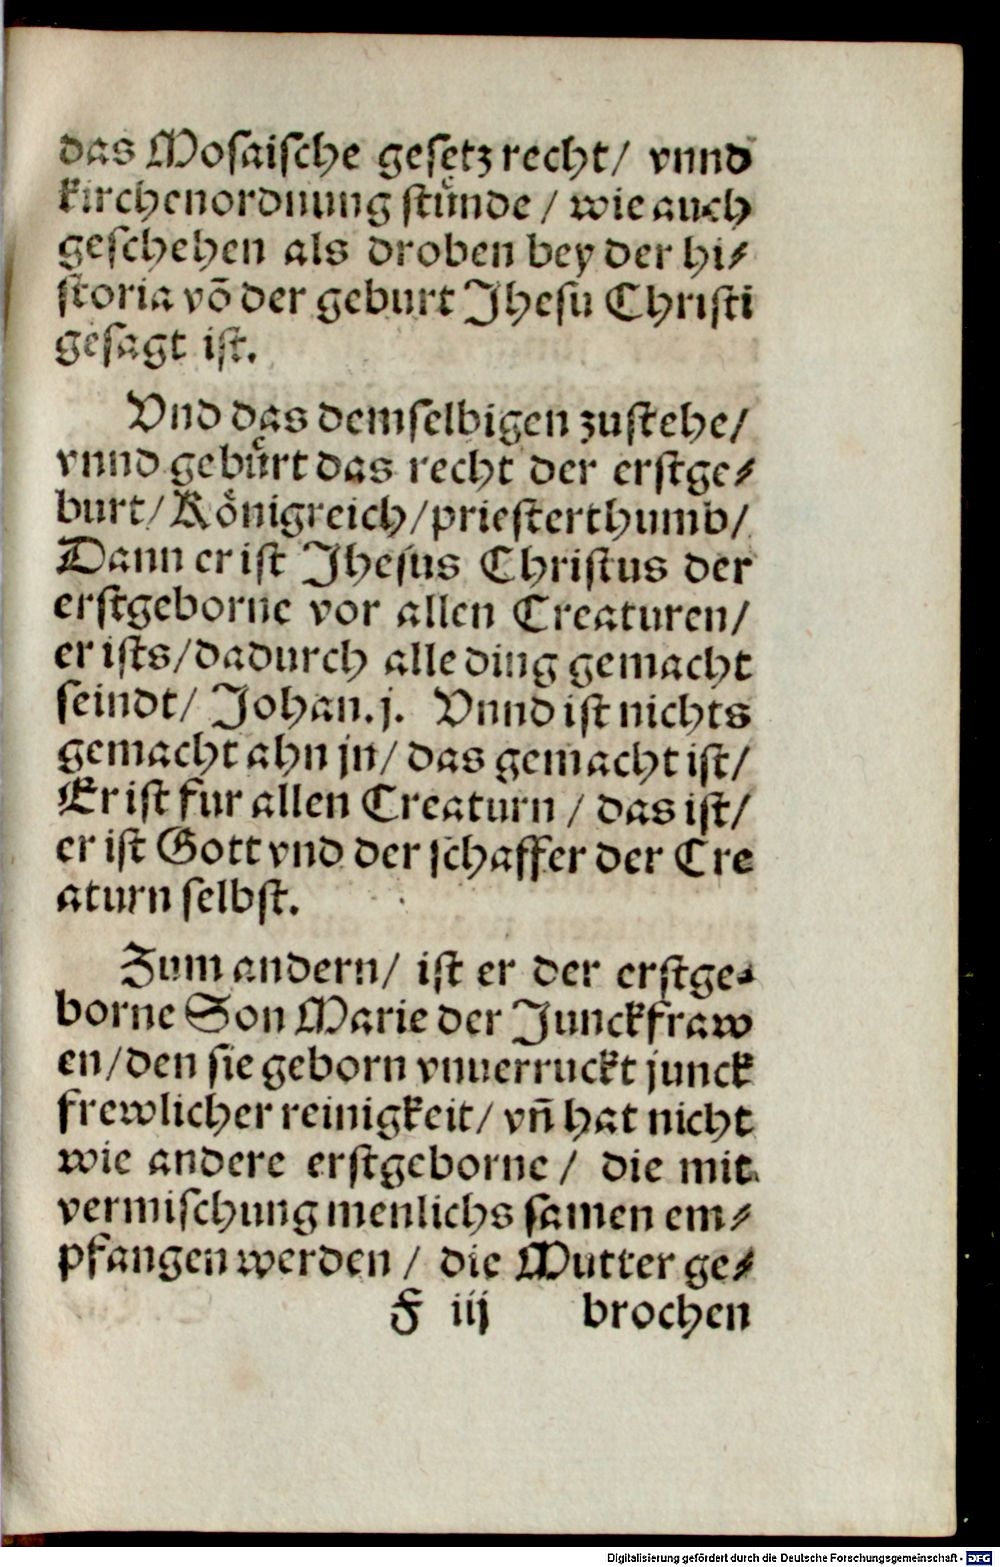 das Mosaische gesetz recht/ vnnd
kirchenordnung stuͤnde / wie auch
geschehen als droben bey der hi⸗
storia võ der geburt Jhesu Christi
gesagt ist.
Vnd das demselbigen zustehe/
vnnd gebuͤrt das recht der erstge⸗
burt/ Koͤnigreich/ priesterthumb/
Dann er ist Jhesus Christus der
erstgeborne vor allen Creaturen/
er ists/ dadurch alle ding gemacht
seindt/ Johan. j. Vnnd ist nichts
gemacht ahn jn/ das gemacht ist/
Er ist fur allen Creaturn / das ist/
er ist Gott vnd der schaffer der Cre
aturn selbst.
Zum andern/ ist er der erstge⸗
borne Son Marie der Junckfraw
en/ den sie geborn vnuerruckt junck
frewlicher reinigkeit/ vñ hat nicht
wie andere erstgeborne / die mit
vermischung menlichs samen em⸗
pfangen werden / die Mutter ge⸗
F iij brochen
Digitalisierung gefördert durch die Deutsche Forschungsgemeinschaft - DFG